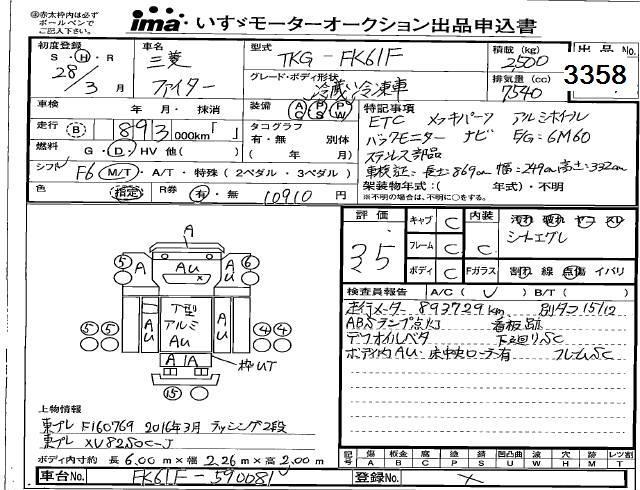 ima いすゞモーターオークション出品申込書
①赤太枠内は必ず
ボールペンで
ご記入下さい。
初度登録 S・H・R 28/3月
車名 三菱 ファイター
型式 TKG-FK61F
積載 (kg) 2500
出品No. 3358
グレード・ボディ形状 冷蔵冷凍車
排気量 (cc) 7540
車検 年 月・抹消
装備 AC PS PW
特記事項
走行 B 893 000km「 」
タコグラフ 有・無 別体 ( 年 月)
ETC メッキパーツ アルミホイール
バックモニター ナビ E/G:6M60
燃料 G・D・HV 他( )
ステンレス部品
シフト F6 M/T・A/T・特殊(2ペダル・3ペダル)
車検証=長さ:869cm 幅:249cm 高さ:332cm
架装物年式:( 年式)・不明
※不明の場合は、不明に○をする
色 指定 R券 有・無 10910円
評価 3.5
キャブ C 内装 C 汚れ 破れ ヤコ スレ
フレーム C シートエグレ
ボディ C Fガラス 割れ 線 点傷 イバリ
検査員報告 A/C( ✓ ) B/T( )
走行メーター 893729km 別タコ15/12
ABSランプ点灯 看板跡
デフオイルベタ 下廻りSC
ボディ内AU 床中央ローラ有 フレームSC
A
⑤ AU ⑥
AU AU
T型
アルミ
AU
AU AU
⑤⑤ ④④
A1A
枠UT
⑮
上物情報
東プレ F160769 2016年3月 ラッシング2段
東プレ XV825DC-J
ボディ内寸約 長 6.00m×幅 2.26m×高 2.00m
記号 傷 A 板金 B 腐 C 塗 P 錆 S 凹凸曲 U 波 W 穴 H 跡 M レンズ割 T
車台No. FK61F-590081
登録No. ×